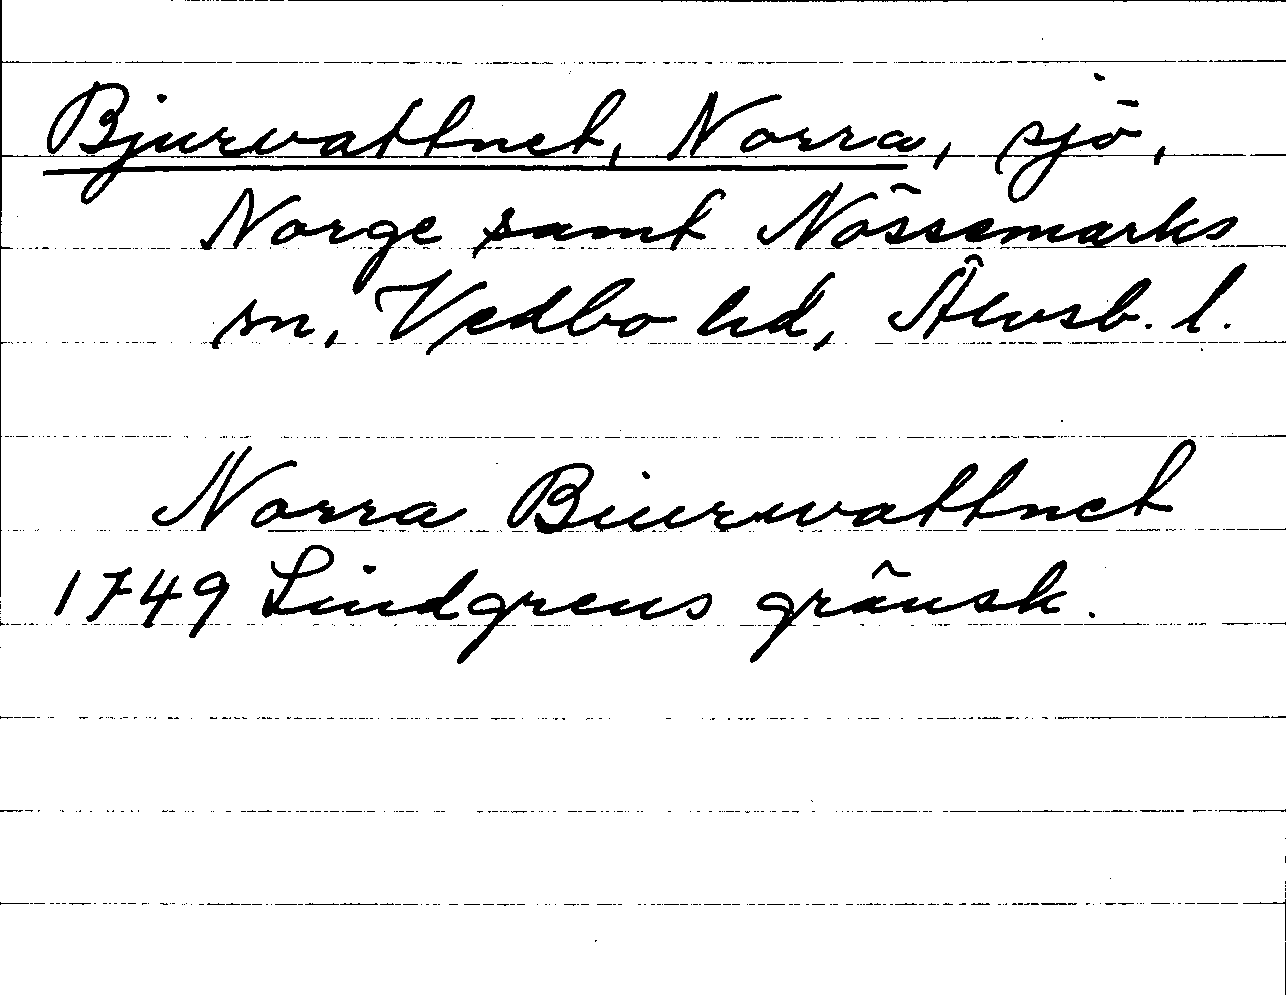 Bjurvattnet, Norra, sjö,
Norge samt Nössemarks
sn, Vedbo hd, Älvsb. l.
Norra Biurwattnet
1749 Lindgrens gränsk.